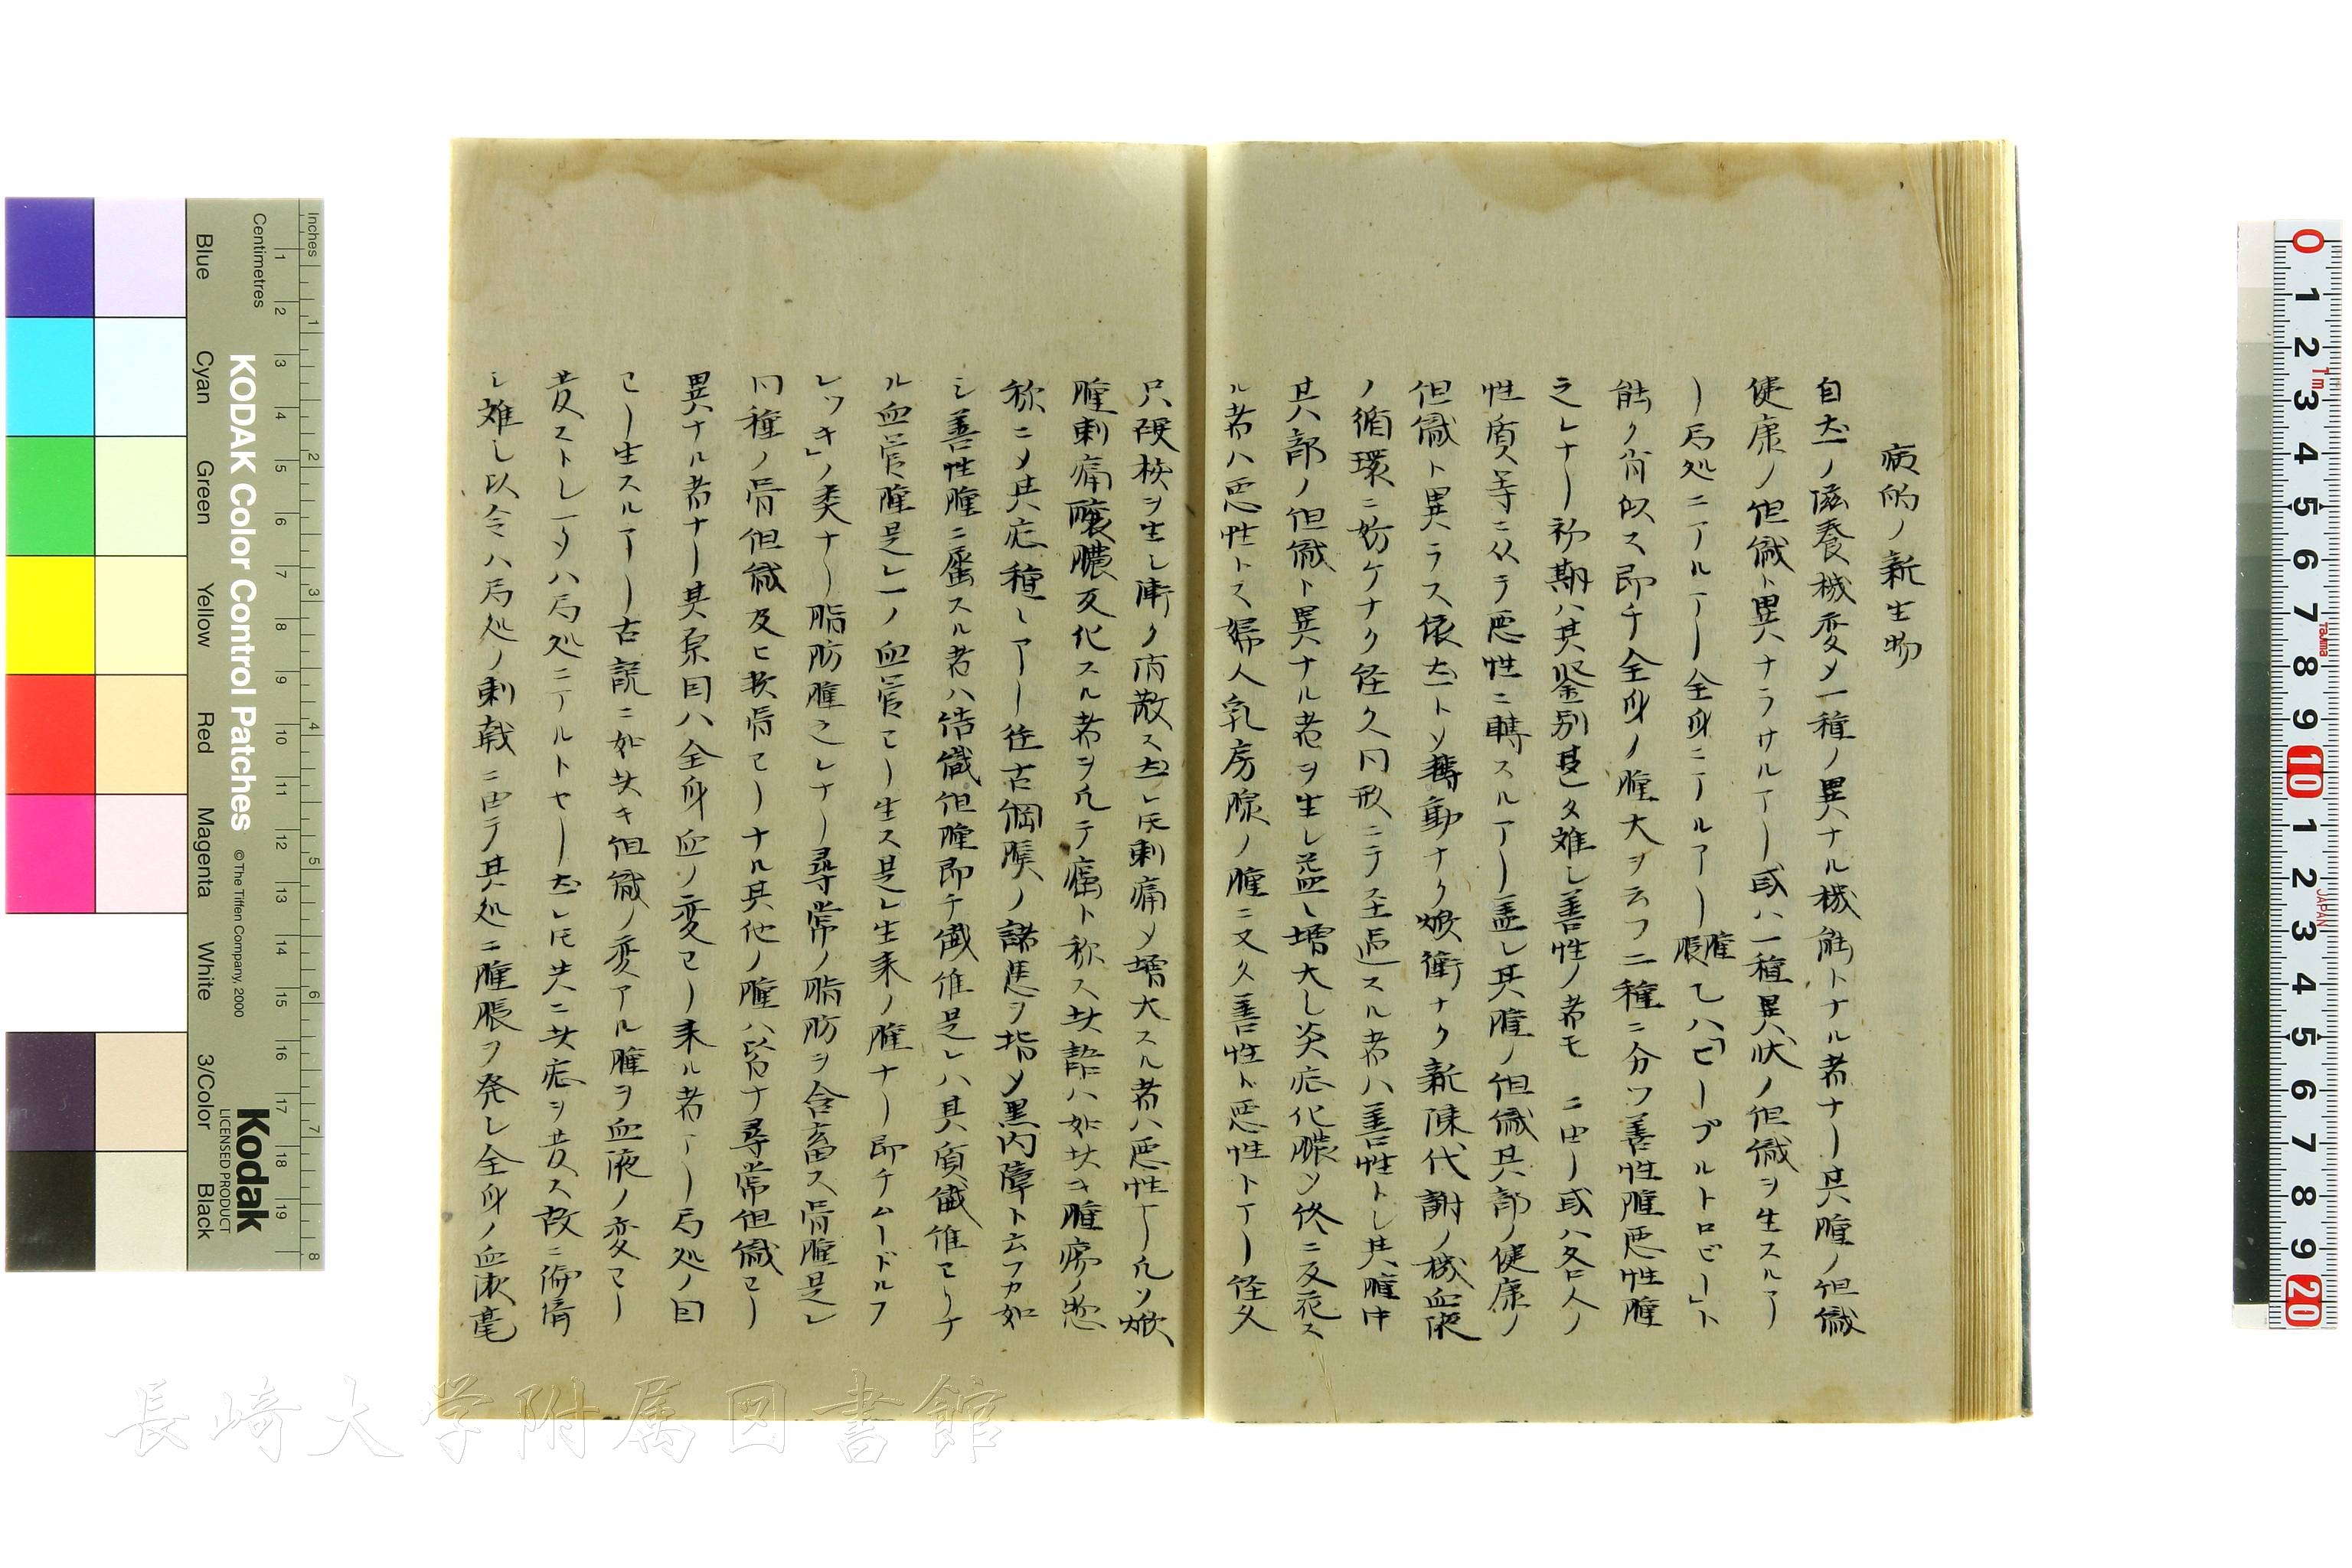 病的ノ新生物
自然ノ滋養機変メ一種ノ異ナル機能トナル者ナリ其腫ノ組織
健康ノ組織ト異ナラサルアリ或ハ一種異状ノ組織ヲ生スルアリ
局処ニアルアリ全身ニアルアリ腫脹 乙ハ「ヒープルトロピー」ト
能ク肖似ス即チ全身ノ腫大ヲ云フ二種ニ分ツ善性腫悪性腫
之レナリ初期ハ其鑒別甚タ難シ善性ノ者モ ニ由リ或ハ各人ノ
性質等ニ从テ悪性ニ轉スルアリ蓋シ其腫ノ組織其部ノ健康ノ
組織ト異ラス依然トメ 動ナク焮衝ナク新陳代謝ノ機血液
ノ循環ニ妨ケナク径久同形ニテ至過スル者ハ善性トシ其腫中
其部ノ組織ト異ナル者ヲ生シ益し増大し炎症化膿メ終ニ反花ス
ル者ハ悪性トス婦人乳房腺ノ腫ニ又久善性ト悪性トアリ径久
只硬核ヲ生し漸ク消散ス然レ𪜈刺痛メ増大スル者ハ悪性ナリ凡ソ焮
腫刺痛釀膿反化スル者ヲ凡テ癌ト称ス此語ハ如此キ腫瘍ノ悪
称ニメ其症種しアリ往古綱膜ノ諸患ヲ指メ黒内障ト云フカ如
シ善性腫ニ属スル者ハ結織組腫即チ織維是レハ其質織維ヨリナ
ル血管腫是レ一ノ血管ヨリ生ス是レ生来ノ腫ナリ即チムードルフ
レツキ」ノ類ナリ脂肪腫之レナリ尋常ノ脂肪ヲ含畜ス骨腫是レ
同種ノ骨組織及ヒ軟骨ヨリナル其他ノ腫ハ皆ナ尋常組織ヨリ
異ナル者ナリ其原因ハ全身血ノ変ヨリ来ル者アリ局処ノ因
ヨリ生スルアリ古説ニ如此キ組織ノ変アル腫ヲ血液ノ変ヨリ
発ストレータハ局処ニアルトセリ然レ𪜈共ニ此症ヲ発ス故ニ
シ難し以今ハ局処ノ刺戟ニ由テ其処ニ腫脹ヲ発し全身ノ血液毫
Inches
Centimetres
KODAK Color Control Patches
© The Tiffen Company, 2000
Kodak
LICENSED PRODUCT
Blue
Cyan
Green
Yellow
Red
Magenta
White
3/Color
Black
長崎大学附属図書館